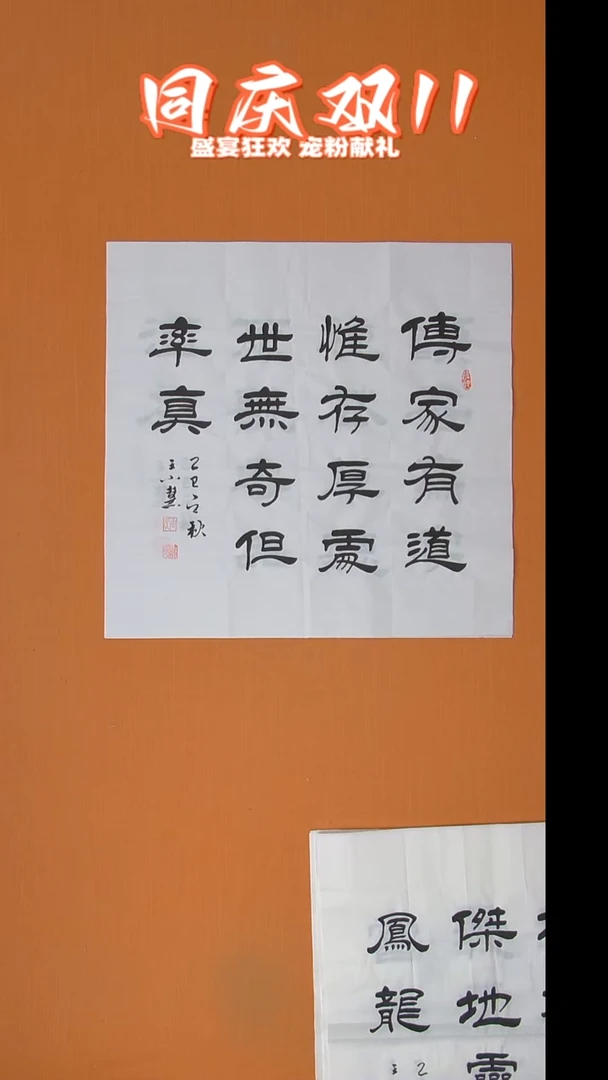 同庆双11
盛宴狂欢 宠粉献礼
傳家有道
惟存厚處
世無奇但
率真
乙巳之秋
王小慧
傑地靈
鳳龍